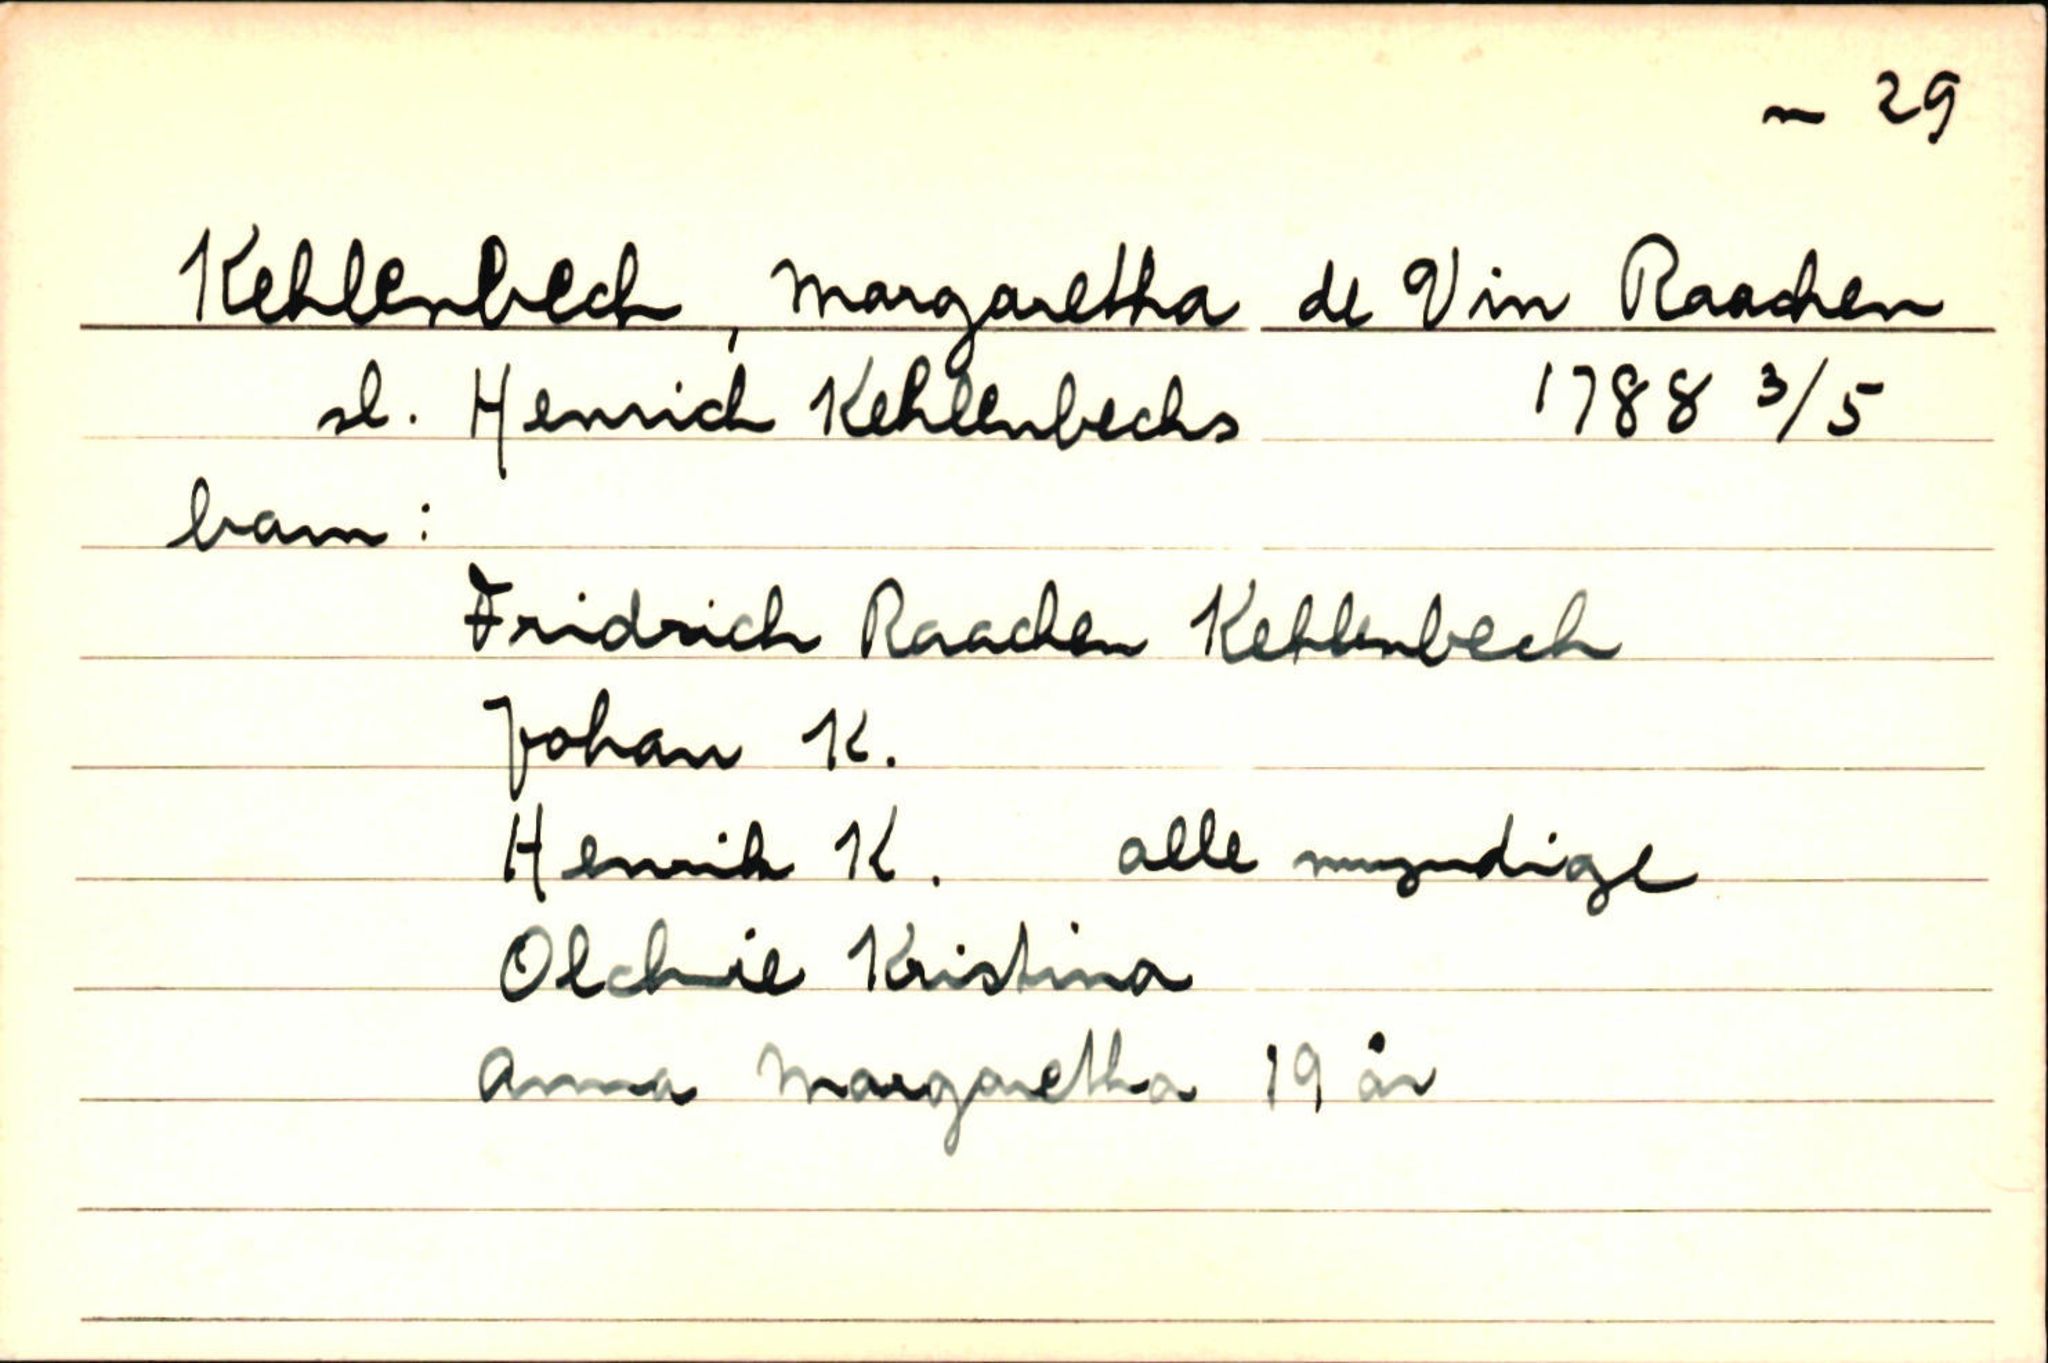 m 29
Kehlenbech, Margaretha de Vin Raachen
sl. Henrich Kehlenbechs 1788 3/5
barn:
Fridrich Raachen Kehlenbech
Johan K.
Henrik K. alle myndige
Olchie Kristina
Anna Margaretha 19 år